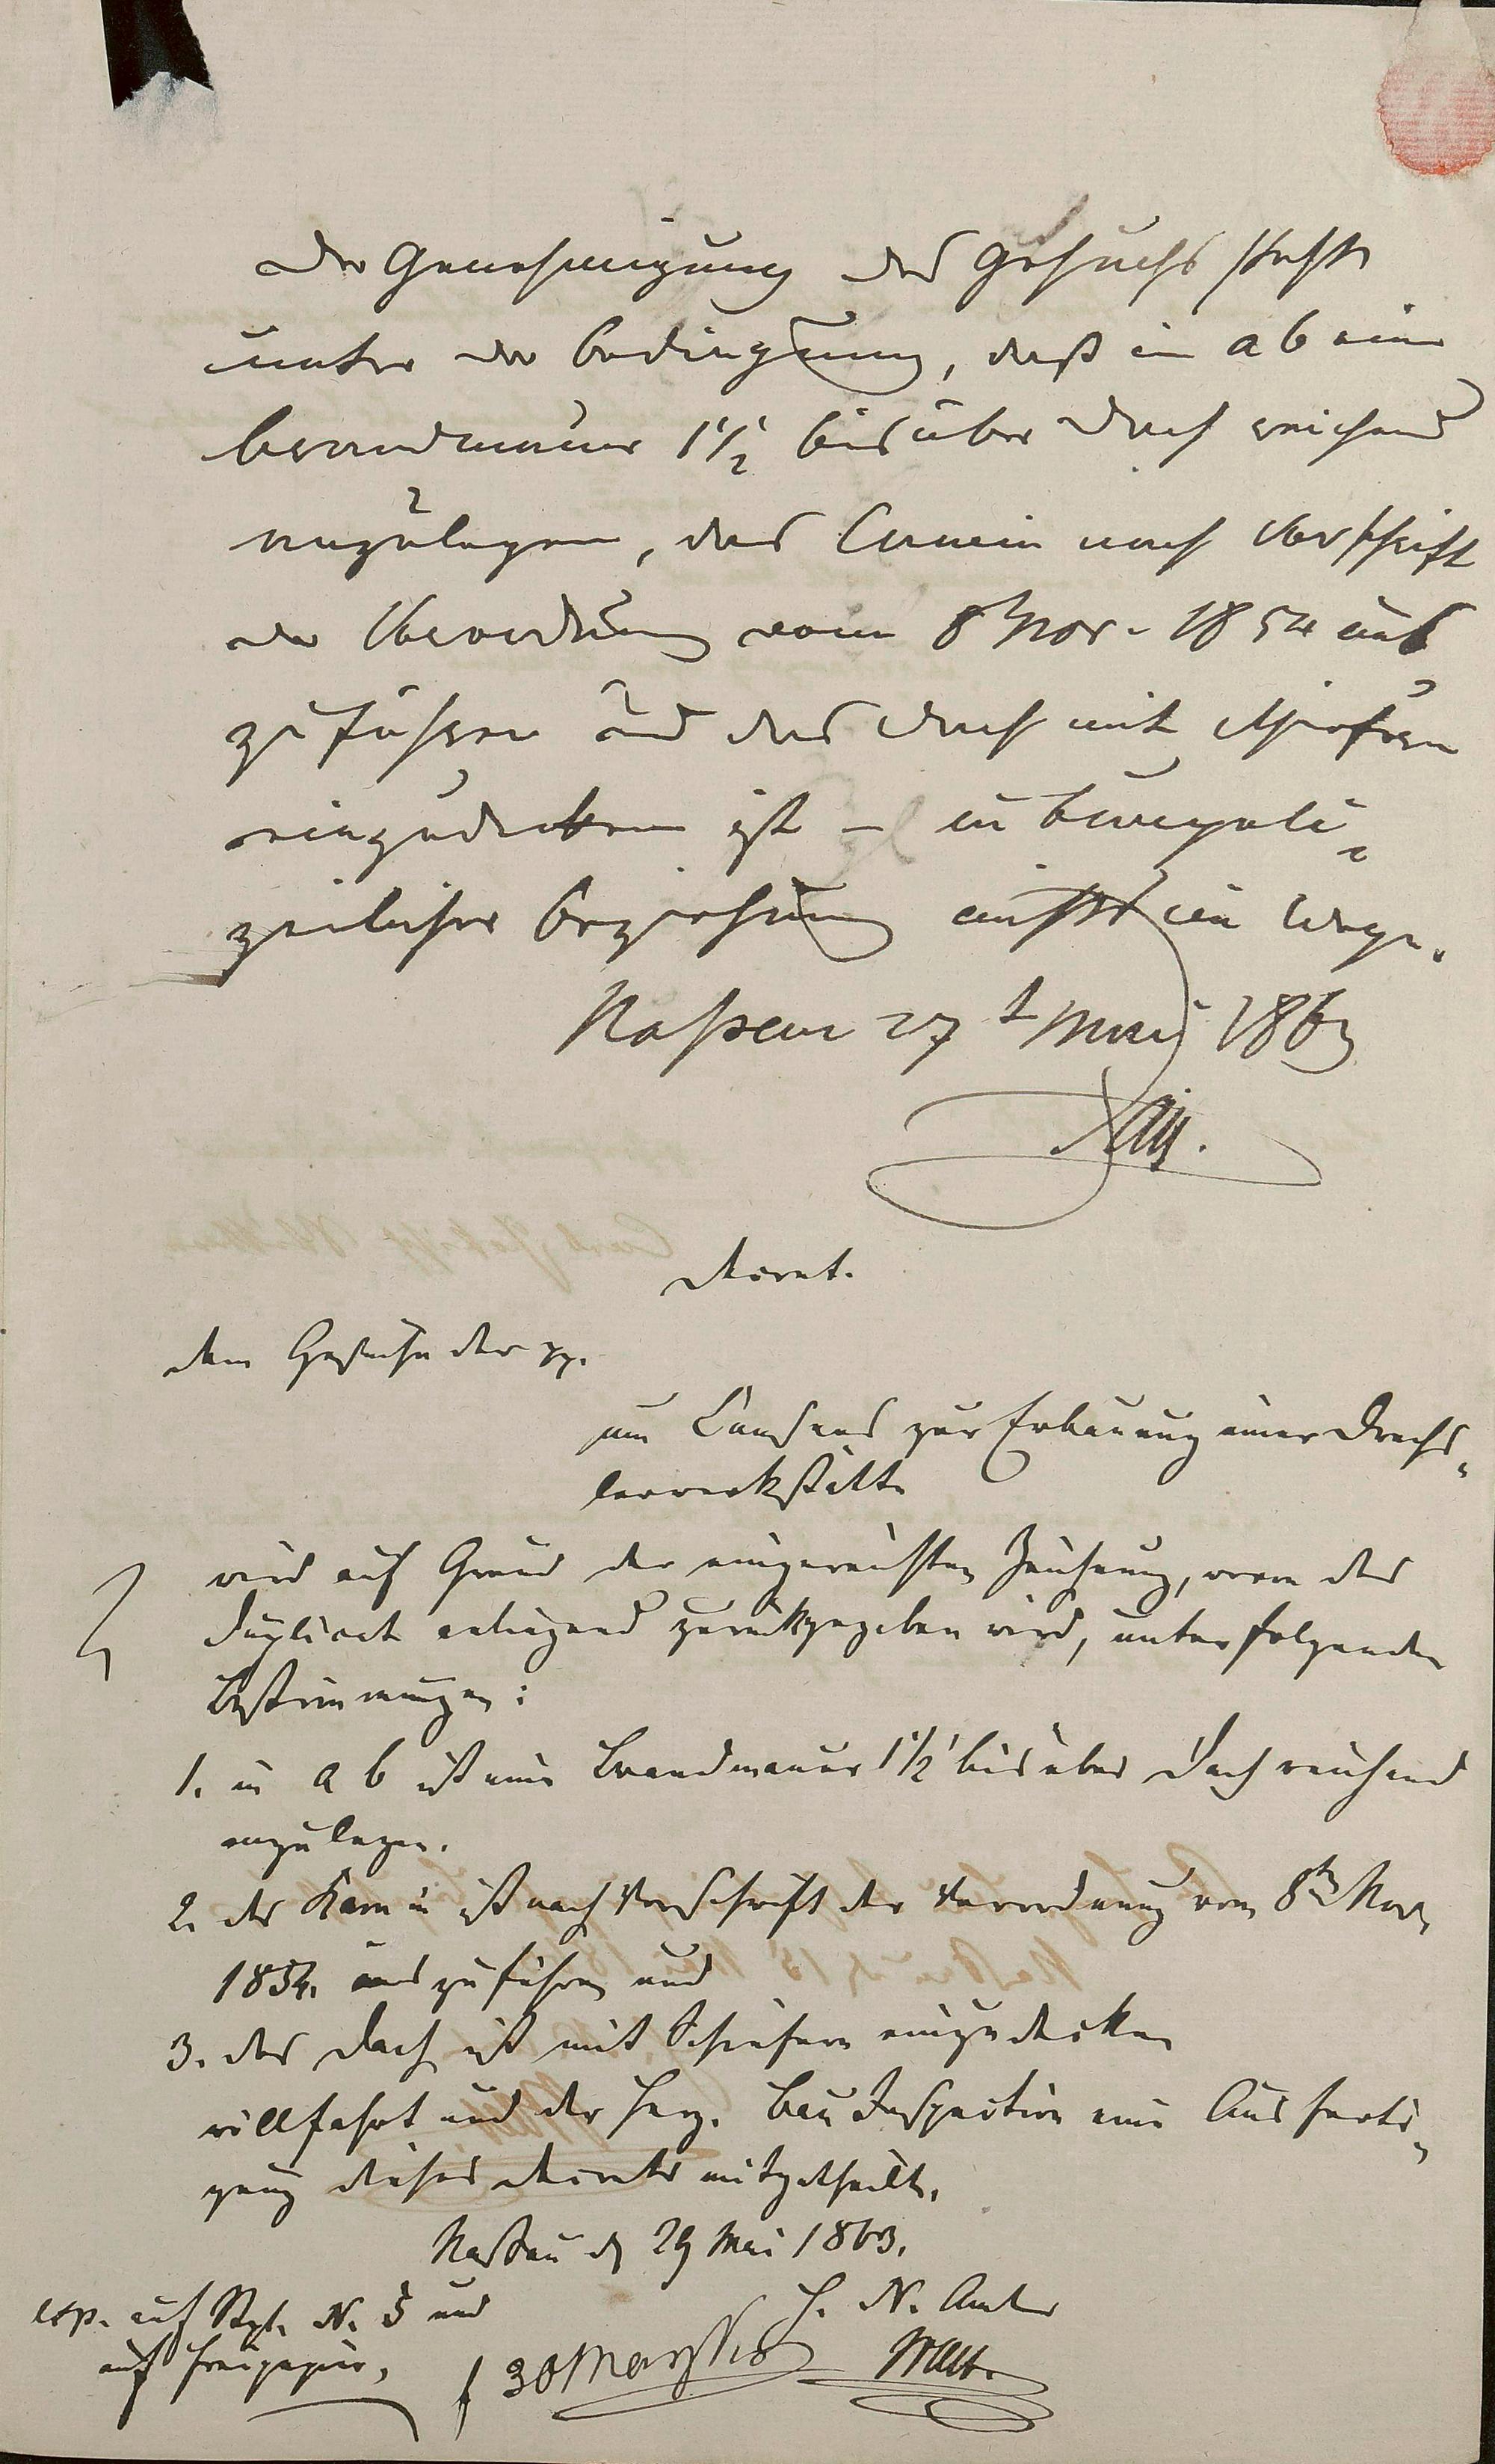 Der Genehmigung des Gesuchs steht
unter der Bedingung, daß in a b eine
Brandmauer 1½' bis über Dach reichend
anzulegen, das Camin nach Vorschrift
der Verordnung vom 8t Nov. 1854 aus
zuführen und das Dach mit Schiefern
einzudecken ist – in baupoli-
zeilicher Beziehung nichts im Wege.
Nassau 27t Mai 1863
Decret.
Dem Gesuche der pp.
um Consens zur Erbauung einer Drechs-
lerwerkstätte
wird auf Grund der eingereichten Zeichnung, wovon das
Duplicat anliegend zurückgegeben wird, unter folgenden
Bestimmungen:
1. in a b ist eine Brandmauer 1½' bis über Dach reichend
anzulegen.
2. der Kamin ist nach Vorschrift der Verordnung vom 8ten Nov.
1854. auszuführen und
3. das Dach ist mit Schiefern einzudecken
willfahrt und der Herz. Bau Inspection eine Ausferti-
gung dieses Decrets mitgetheilt.
Nassau d 29 Mai 1863.
H. N. Amt
exp. auf Stpl. N. 5 und
auf Freipapier,
30